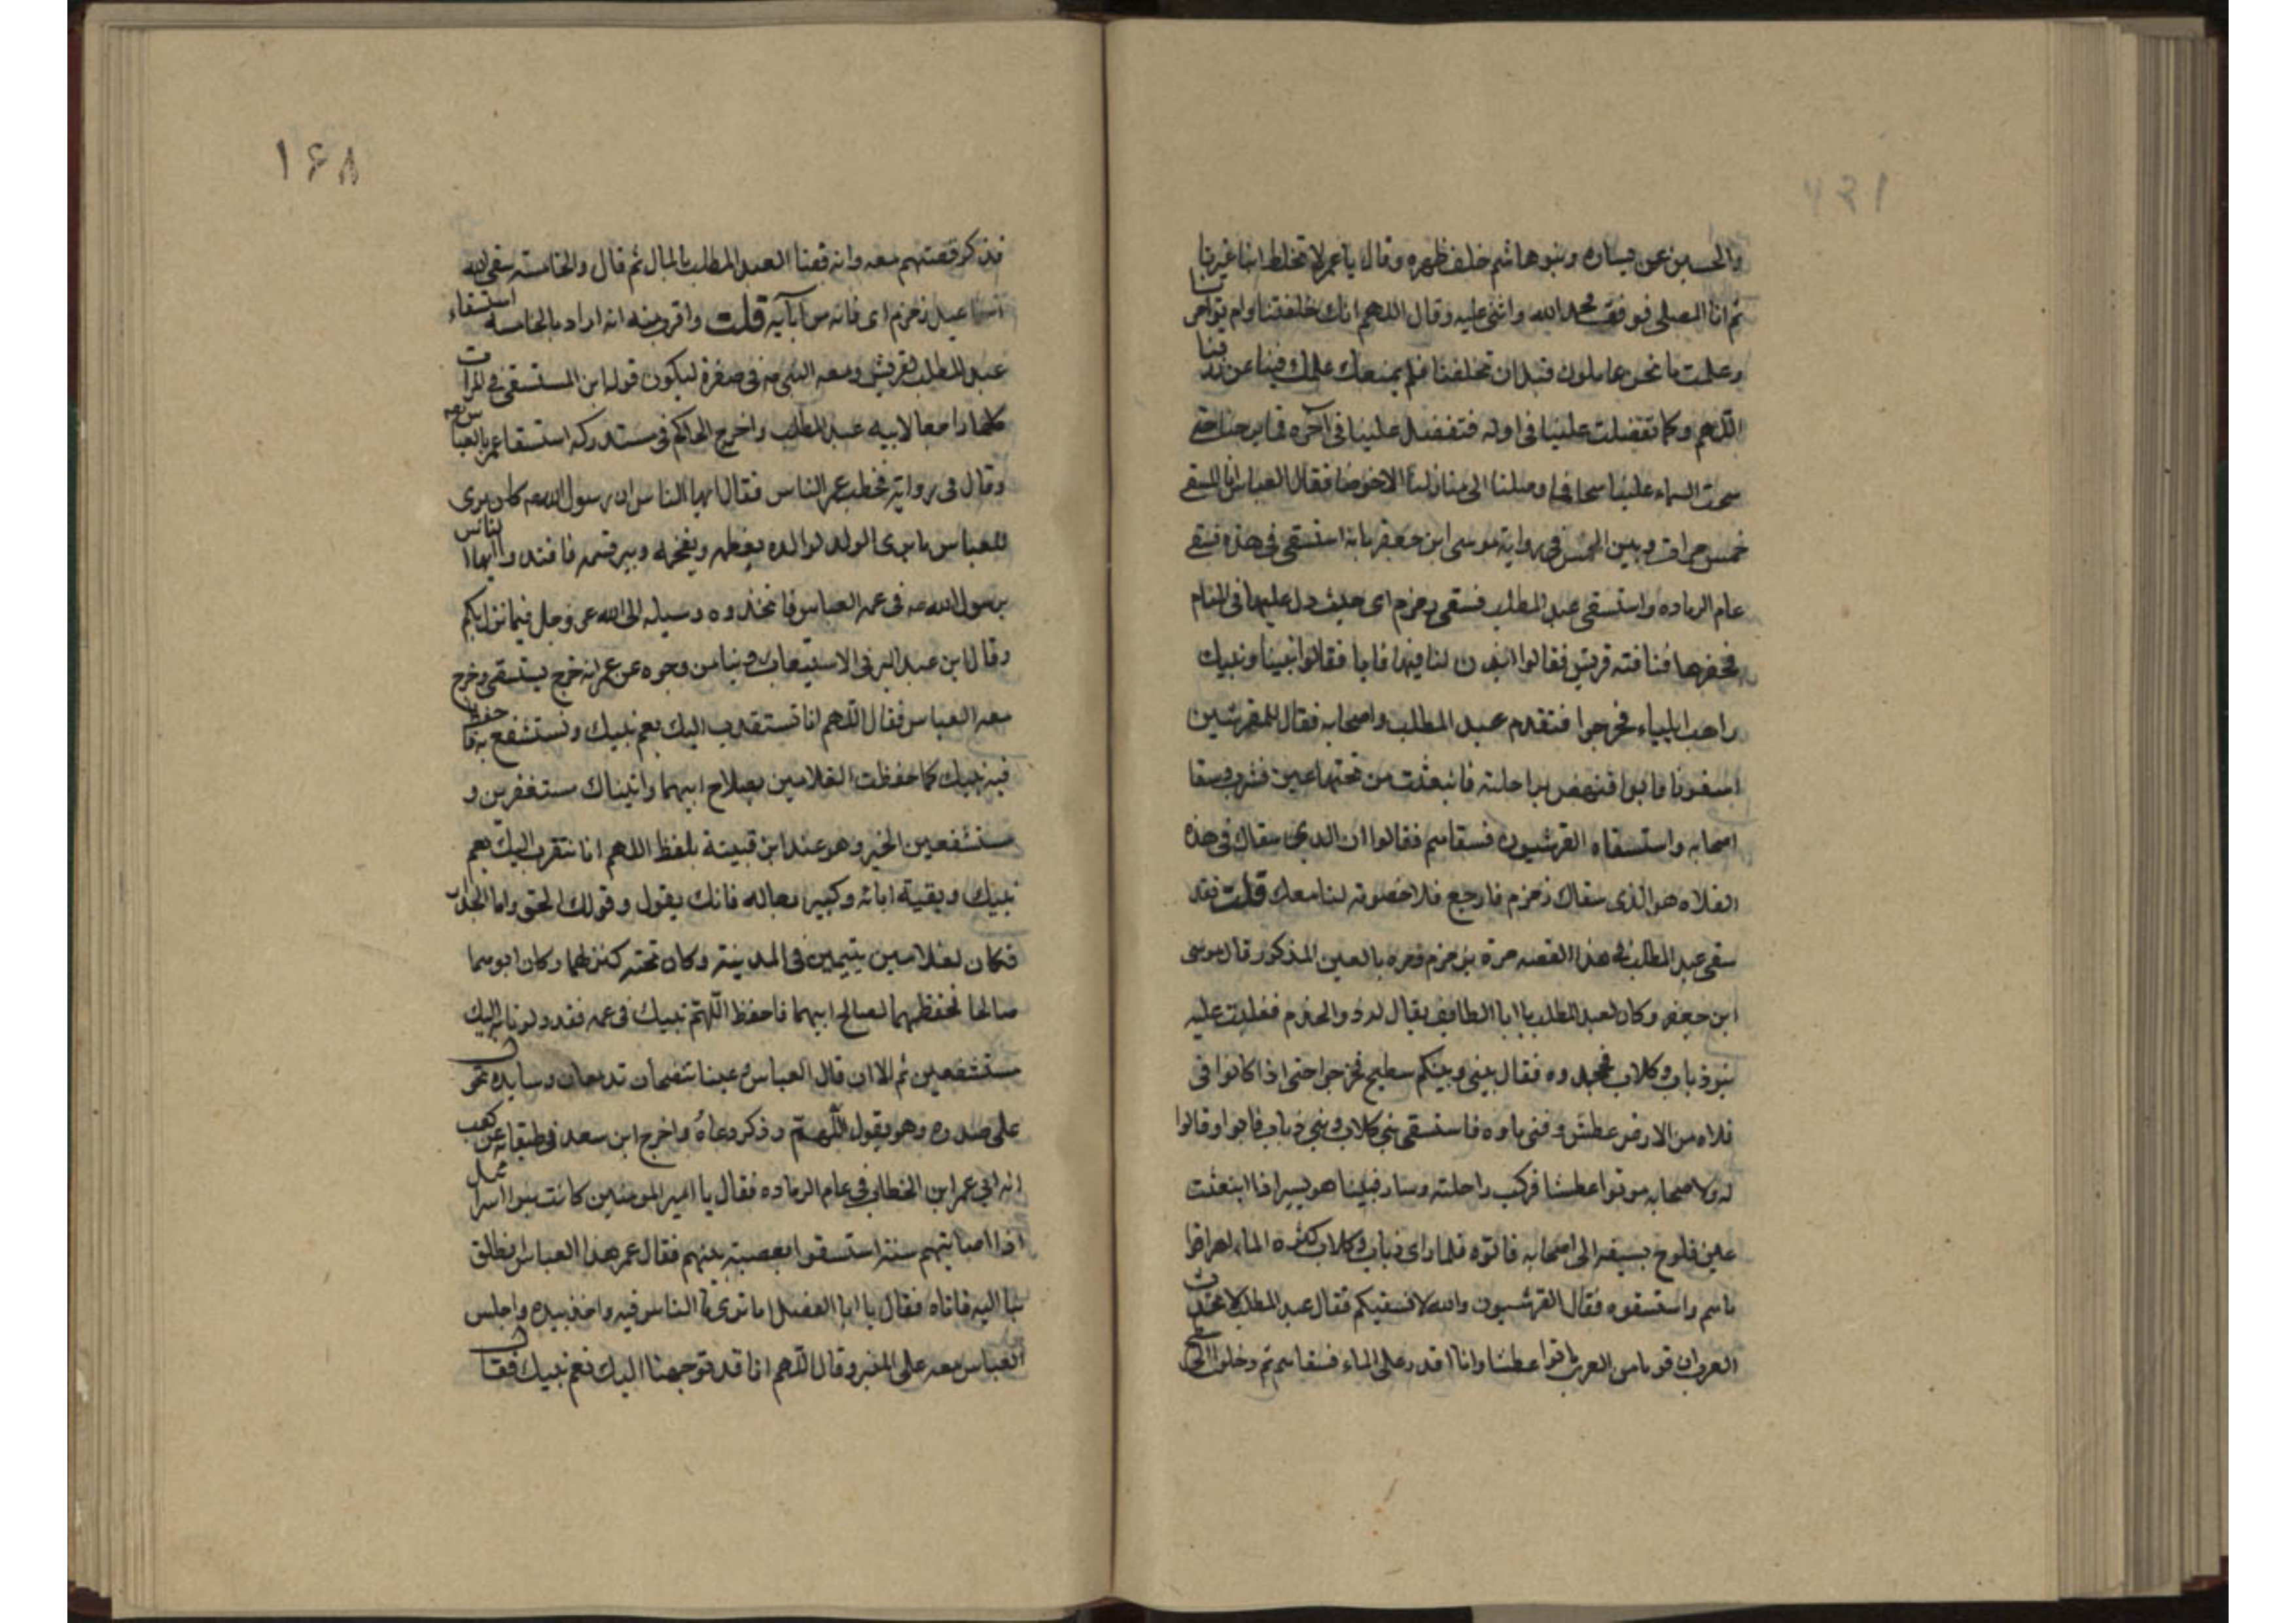 والحسين عن يساره وبنوهاشم خلف ظهره وقال يا عمر لا تخلط بنا غيرنا
ثم اتا المصلى فوقف فحمد الله واثنى عليه وقال اللهم انك خلقتنا ولم تؤامرنا
وعلمت ما نحن عاملون قبل ان تخلقنا فلم يمنعك علمك فينا عن رزقنا
اللهم وكما تفضلت علينا فى اوله فتفضل علينا فى آخره فما برحنا حتى
سحت السماء علينا سحا فما وصلنا الى منازلنا الا خوضا فقال العباس انا المسقى
خمس مرات وبين الخمس فى رواية موسى ابن جعفر بانه استسقى فى هذه فسقى
عام الرماده واستسقى عبد المطلب فسقى زمزم اى حيث دل عليها فى المنام
فحفرها فنافته قريش فقالوا ائذن لنا فيها فابا فقالوا بيننا وبينك
راهب ايلياء فخرجوا فتقدم عبد المطلب واصحابه فقال للقرشيين
اسقونا فابوا فنهض براحلته فانبعثت من تحتها عين فشرب وسقا
اصحابه واستسقاه القرشيون فسقاهم فقالوا ان الذى سقاك فى هذه
الفلاه هو الذى سقاك زمزم فارجع فلا خصومه لنا معك قلت فقد
سقى عبد المطلب فى هذا القصه مرة بزمزم ومره بالعين المذكور قال موسى
ابن جعفر وكان لعبد المطلب مال بالطايف يقال له ذو الهرم فغلبت عليه
بنو ذباب وكلاب فجحدوه فقال بينى وبينكم سطيح فخرجوا حتى اذا كانوا فى
فلاه من الارض عطش وفنى ماوه فاستسقى بنى كلاب وبنى ذباب فابوا وقالوا
له ولاصحابه موتوا عطشا فركب راحلته وسار فبينا هو يسير اذا انبعثت
عين فلوح بسيفه الى اصحابه فاتوه فلما راى ذباب وكلاب كثره الماء اهراقوا
ماهم واستسقوه فقال القرشيون والله لا نسقيكم فقال عبد المطلب لا تحدث
العرب ان قوما من العرب ماتوا عطشا وانا اقدر على الماء فسقاهم ثم دخلوا الى سطيح
١۶٨
فذكر قصتهم معه وانه قضا لعبد المطلب بالمال ثم قال والخامسه سقى الله
اسماعيل زمزم اى فانه من آبآيه قلت واقرب منه انه اراد بالخامسه استسقاء
عبد المطلب لقريش ومعه النبى صه فى صغره ليكون قوله ابن المستسقى فى المرات
كلها راجعا لابيه عبد المطلب واخرج الحاكم فى مستدركه استسقا عمر بالعباس رضه
وقال فى رواية فخطب عمر الناس فقال ايها الناس ان رسول الله صه كان يرى
للعباس ما يرى الولد لوالده يعظمه ويفخمه ويبر قسمه فاقتدوا ايها الناس
برسول الله صه فى عمه العباس فاتخذوه وسيله الى الله عز وجل فيما نزل بكم
وقال ابن عبد البر فى الاستيعاب روينا من وجوه عن عمر انه خرج يستسقى وخرج
معه العباس فقال اللهم انا نستقرب اليك بعم نبيك ونستشفع به فاحفظ
فيه نبيك كما حفظت الغلامين بصلاح ابيهما واتيناك مستغفرين و
مستشفعين الخبر وهو عند ابن قتيبة بلفظ اللهم انا نتقرب اليك بعم
نبيك وبقية ابائه وكبير رجاله فانك يقول وقولك الحق واما الجدار
فكان لغلامين يتيمين فى المدينة وكان تحته كنز لهما وكان ابوهما
صالحا فحفظهما لصالح ابيهما فاحفظ اللّهمّ نبيك فى عمه فقد دلونا به اليك
مستشفعين ثم الا ان قال العباس وعينا تنضحان
على صدره وهو يقول اللّهمّ وذكر دعاه واخرج ابن سعد فى طبقاته عن كعب
انه اتى عمر ابن الخطاب فى عام الرماده فقال يا امير المومنين كانت بنوا اسرائيل
اذا اصابتهم سنة استسقوا بعصبة نبيهم فقال عمر هذا العباس انطلق
بنا اليه فاتاه فقال يا ابا الفضل اما ترى ما الناس فيه واخذ بيده واجلس
العباس معه على المنبر وقال اللهم انا قد توجهنا اليك بعم نبيك فقال